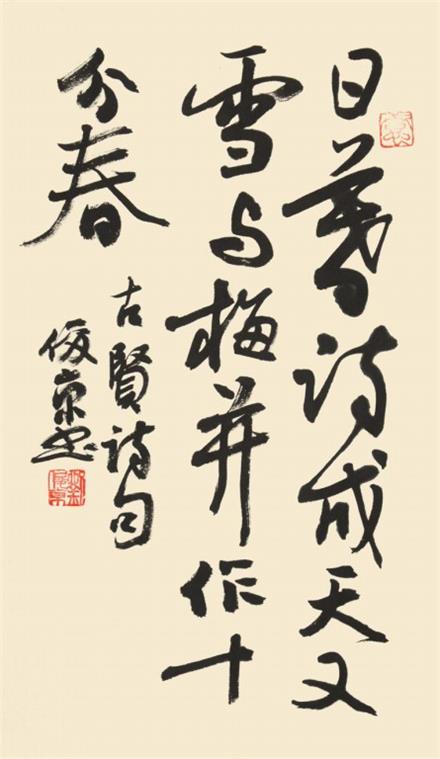 日暮诗成天又
雪与梅并作十
分春
古賢诗句
俊京书